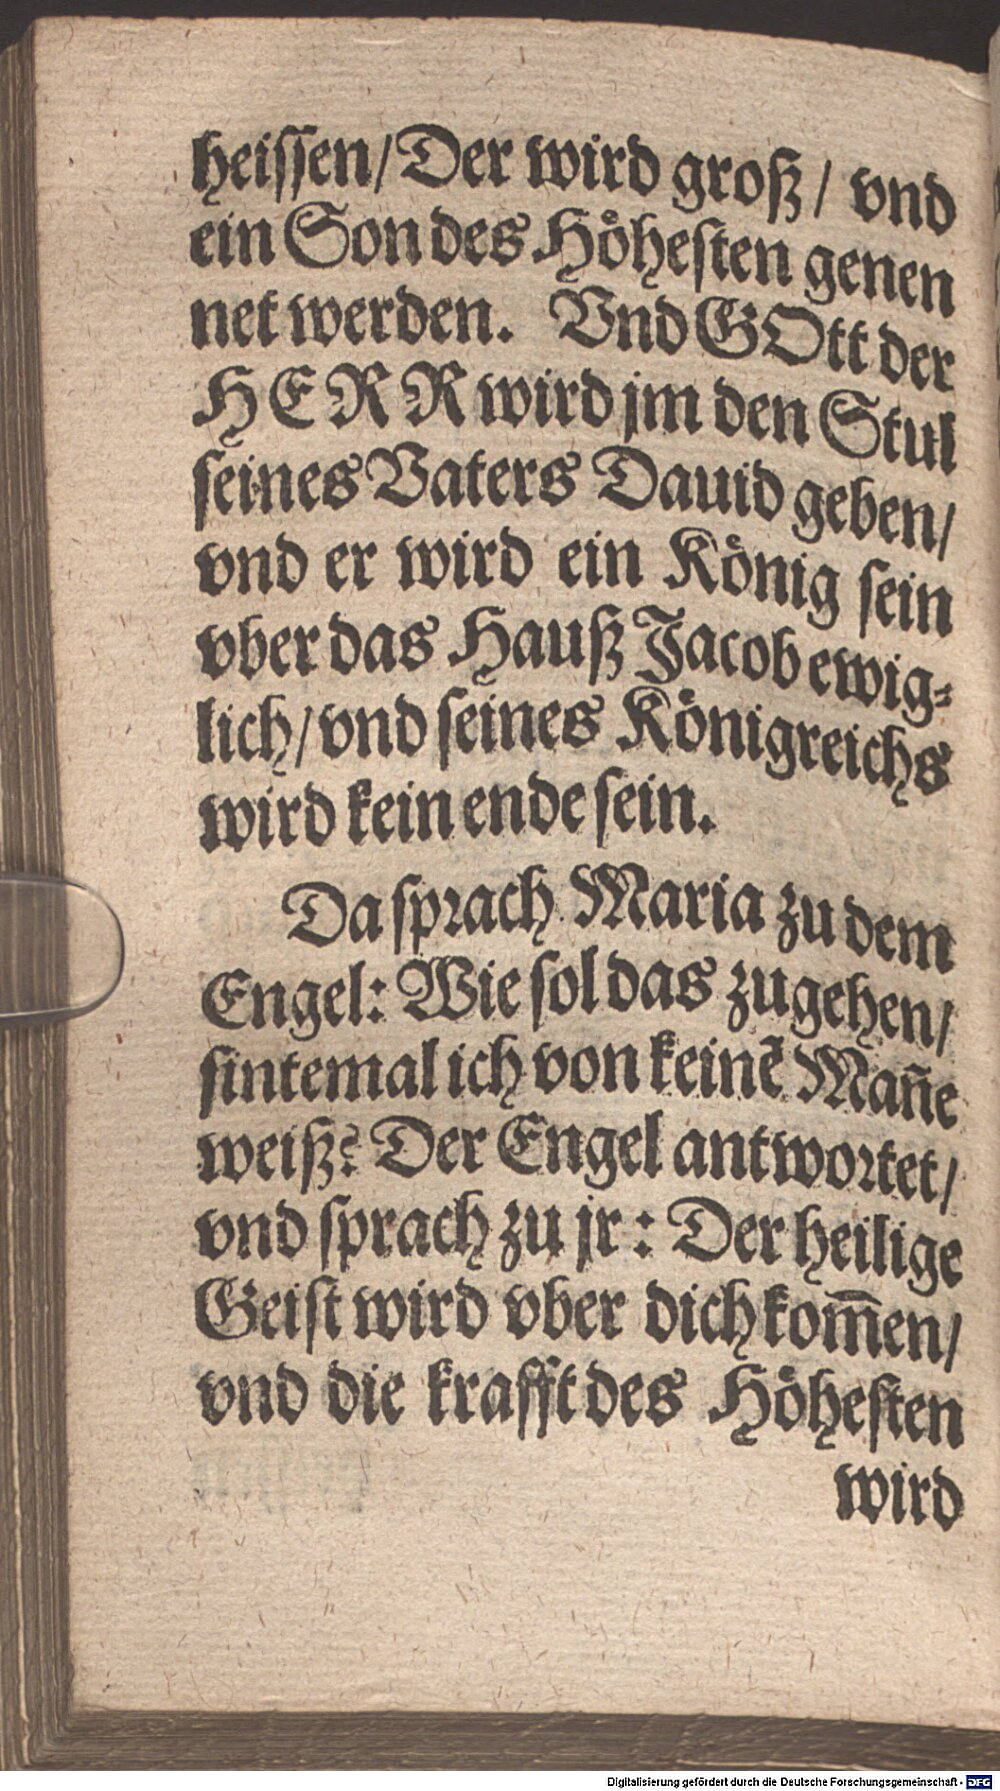 heiſſen/ Der wird groß/ vnd
ein Son des Hoͤheſten genen
net werden. Vnd GOtt der
HERR wird jm den Stul
ſeines Vaters Dauid geben/
vnd er wird ein Koͤnig ſein
vber das Hauß Jacob ewig⸗
lich/ vnd ſeines Koͤnigreichs
wird kein ende ſein.
Da ſpꝛach Maria zu dem
Engel: Wie ſol das zugehen/
ſintemal ich von keinẽ Mañe
weiß? Der Engel antwoꝛtet/
vnd ſprach zu jr: Der heilige
Geiſt wird vber dich kom̃en/
vnd die krafft des Hoͤheſten
wird
Digitalisierung gefördert durch die Deutsche Forschungsgemeinschaft - DFG